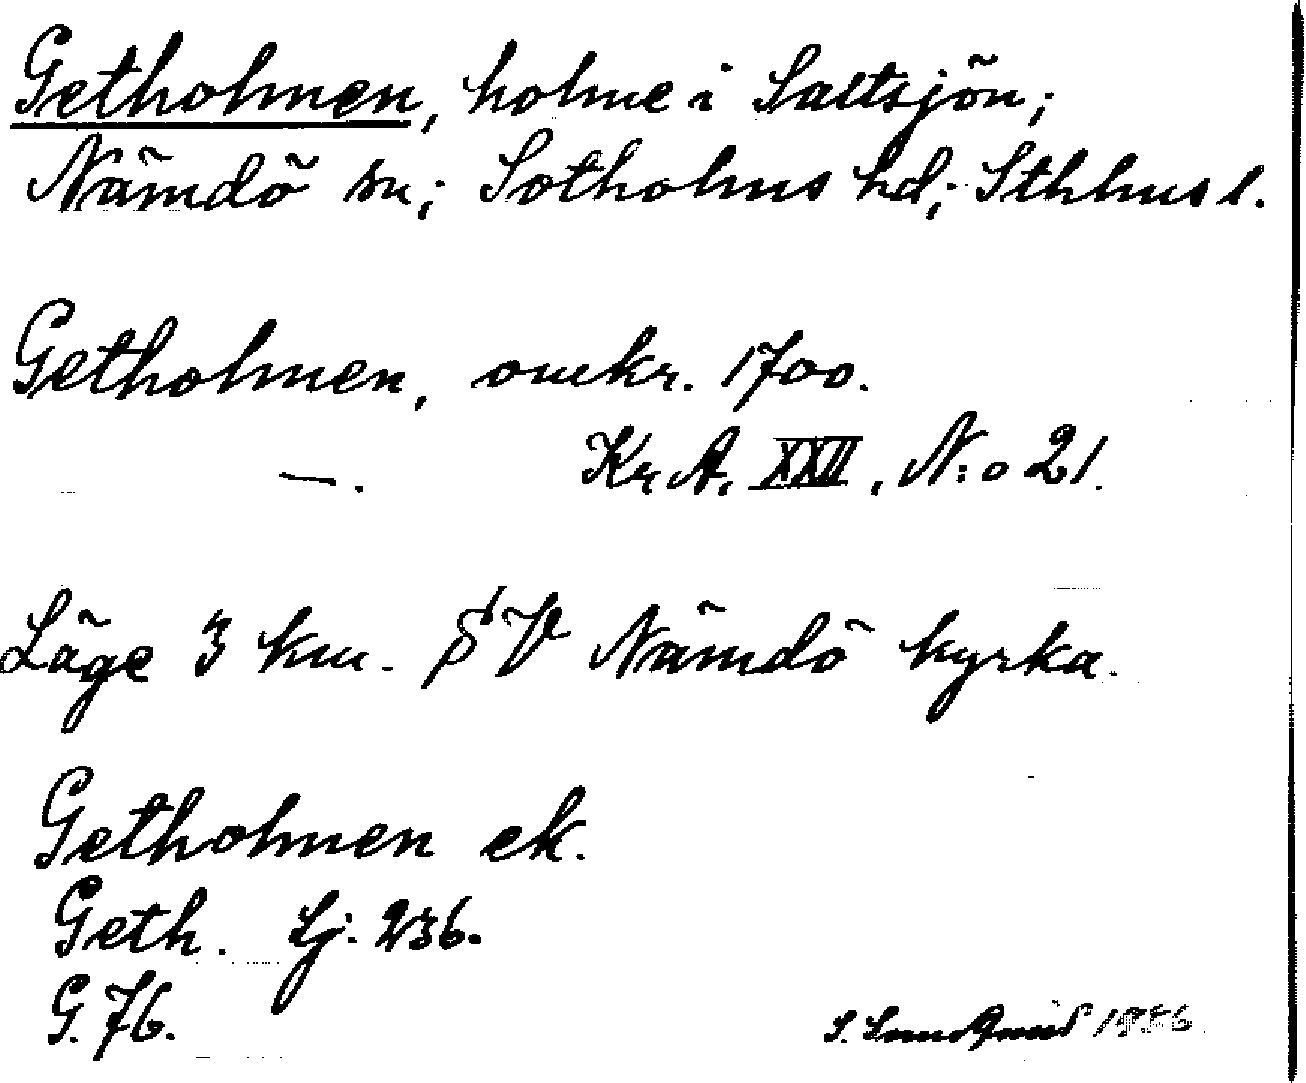 Getholmen, holme i Saltsjön;
Nämdö sn; Sotholms hd; Sthlms l.
Getholmen, omkr. 1700.
—. Kr. A. XXII, N:o 21.
Läge 3 km. SV Nämdö kyrka.
Getholmen ek.
Geth. Sj. 236.
G. 76.